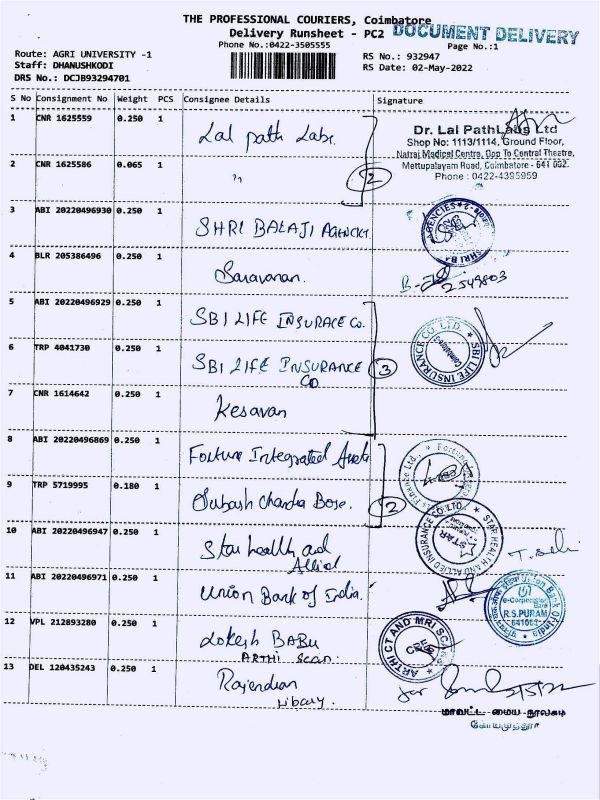 THE PROFESSIONAL COURIERS, Coimbatore
Delivery Runsheet - PC2
DOCUMENT DELIVERY
Phone No.:0422-3505555
Page No.:1
Route: AGRI UNIVERSITY -1
RS No.: 932947
Staff: DHANUSHKODI
RS Date: 02-May-2022
DRS No.: DCJB93294701
S No Consignment No Weight PCS Consignee Details Signature
1 CNR 1625559 0.250 1 Lal path Labs.
Dr. Lal PathLabs Ltd
Shop No: 1113/1114, Ground Floor,
Natraj Medical Centre, Opp To Central Theatre,
Mettupalayam Road, Coimbatore - 641 002.
Phone : 0422-4395959
2 CNR 1625586 0.065 1 " 2
3 ABI 20220496930 0.250 1 SHRI BALAJI AGENCIES
AGENCIES SHRI BA
4 BLR 205386496 0.250 1 Saravanan.
2549803
5 ABI 20220496929 0.250 1 SBI LIFE INSURACE CO.
6 TRP 4041730 0.250 1 SBI LIFE INSURANCE
CO
3
SBI LIFE INSURANCE CO. LTD. Coimbatore
7 CNR 1614642 0.250 1 Kesavan
8 ABI 20220496869 0.250 1 Fortune Integrated
9 TRP 5719995 0.180 1 Subash Chandra Bose.
2
10 ABI 20220496947 0.250 1 Star health and
Allied
STAR HEALTH AND ALLIED INSURANCE CO LTD.
STAR
11 ABI 20220496971 0.250 1 Union Bank of India.
Union Bank Of India
R.S.PURAM
641002
12 VPL 212893280 0.250 1 Lokesh BABU
ARTHI SCAN.
ARTHI CT AND MRI SCANS
CBE
13 DEL 120435243 0.250 1 Rajendran
Libary.
மாவட்ட மைய நூலகம்
கோயமுத்தூர்